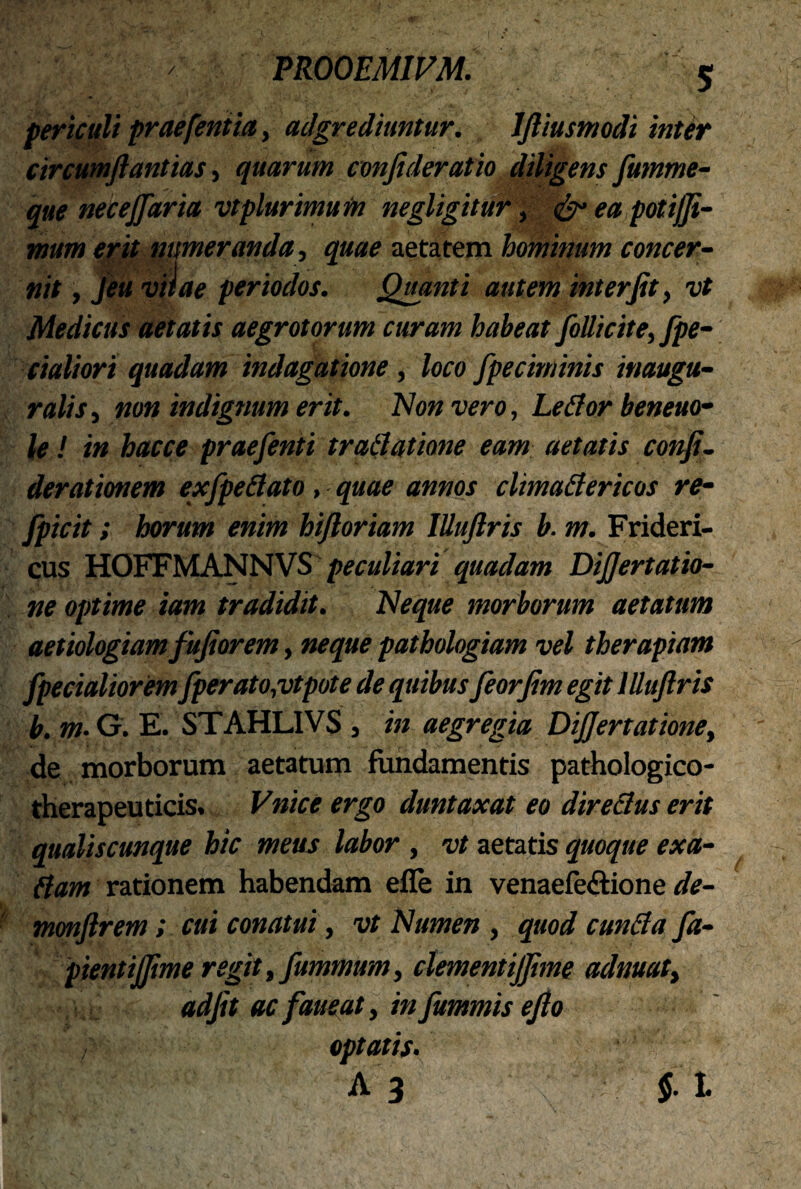 PROOEMIVM. 5
periculi praeſentia, adgrediuntur. Iſtiusmodi inter
circumſtantias, quarum conſideratio diligens ſumme-
que neceſſaria vtplurimum negligitur, & ea potiſſi-
mum erit numeranda, quae aetatem hominum concer-
nit, ſeu vitae periodos. Quanti autem interſit, vt
Medicus aetatis aegrotorum curam habeat ſollicite, ſpe-
cialiori quadam indagatione, loco ſpeciminis inaugu-
ralis, non indignum erit. Non vero, Lector beneuo-
le! in hacce praeſenti tractatione eam aetatis conſi-
derationem exſpectato, quae annos climactericos re-
ſpicit; horum enim hiſtoriam Illuſtris b. m. Frideri-
cus HOFFMANNVS peculiari quadam Diſſertatio-
ne optime iam tradidit. Neque morborum aetatum
aetiologiam fuſiorem, neque pathologiam vel therapiam
ſpecialiorem ſperato, vtpote de quibus ſeorſim egit Illuſtris
b. m. G. E. STAHLIVS, in aegregia Diſſertatione,
de morborum aetatum fundamentis pathologico-
therapeuticis. Vnice ergo duntaxat eo directus erit
qualiscunque hic meus labor, vt aetatis quoque exa-
ctam rationem habendam eſſe in venaeſectione de-
monſtrem; cui conatui, vt Numen, quod cuncta ſa-
pientiſſime regit, ſummum, clementiſſime adnuat,
adſit ac faueat, in ſummis eſto
optatis.
A 3 §. I.